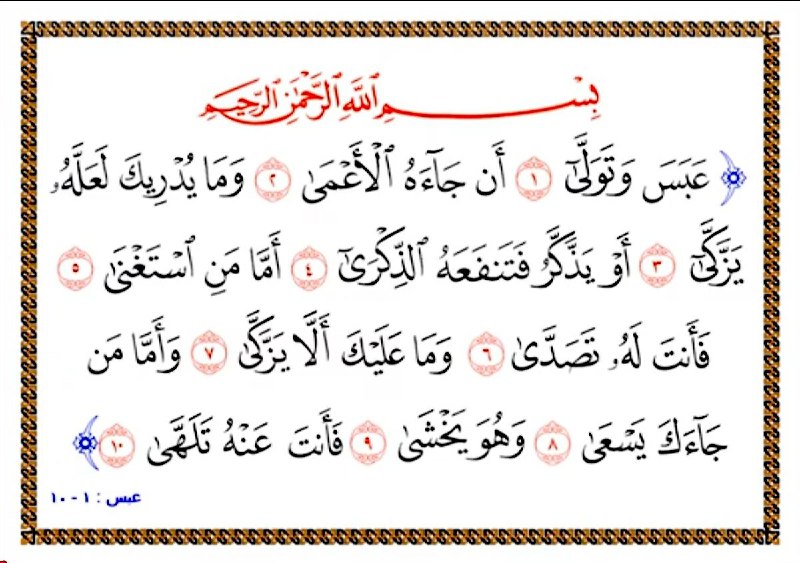 بِسْمِ ٱللَّهِ ٱلرَّحْمَٰنِ ٱلرَّحِيمِ
﴿ عَبَسَ وَتَوَلَّىٰٓ ١ أَن جَآءَهُ ٱلْأَعْمَىٰ ٢ وَمَا يُدْرِيكَ لَعَلَّهُۥ
يَزَّكَّىٰٓ ٣ أَوْ يَذَّكَّرُ فَتَنفَعَهُ ٱلذِّكْرَىٰٓ ٤ أَمَّا مَنِ ٱسْتَغْنَىٰ ٥
فَأَنتَ لَهُۥ تَصَدَّىٰ ٦ وَمَا عَلَيْكَ أَلَّا يَزَّكَّىٰ ٧ وَأَمَّا مَن
جَآءَكَ يَسْعَىٰ ٨ وَهُوَ يَخْشَىٰ ٩ فَأَنتَ عَنْهُ تَلَهَّىٰ ١٠ ﴾
عبس : ١ - ١٠